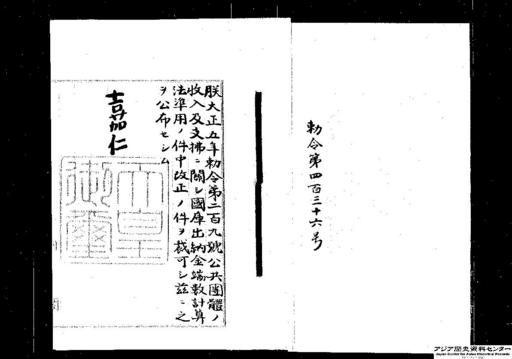 勅令第四百三十六号
朕大正五年勅令第二百九號公共團體ノ
收入及支拂ニ關シ國庫出納金端數計算
法準用ノ件中改正ノ件ヲ裁可シ茲ニ之
ヲ公布セシム
嘉仁
天皇御璽
アジア歴史資料センター
Japan Center for Asian Historical Records